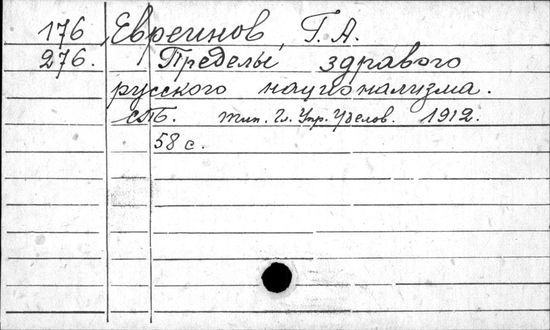 176 Евреинов, Г. А.
276. Пределы здравого
русского национализма.
СПБ. тип. Гл. Упр. Уделов. 1912.
58 с.